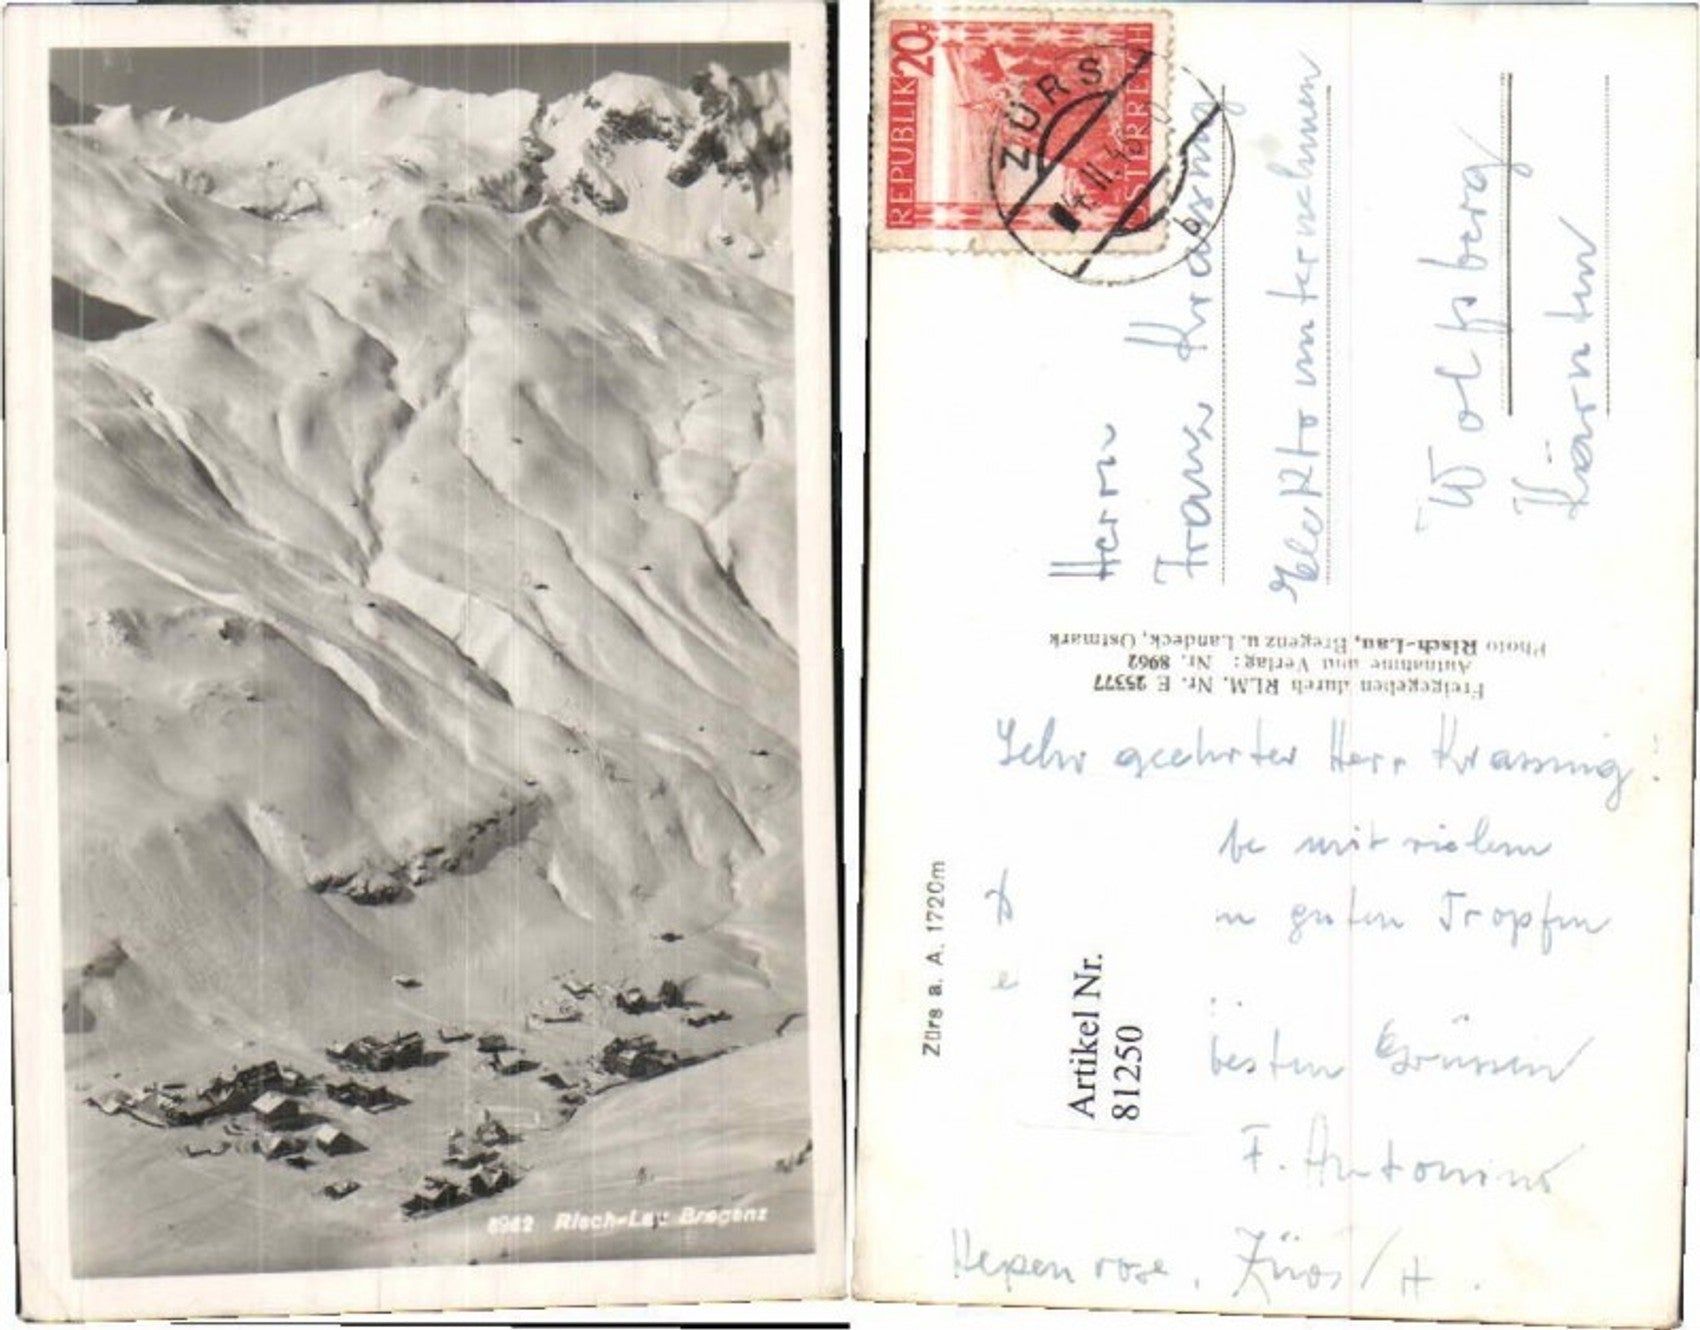 8962 Risch-Lau Bregenz
REPUBLIK
20g
ÖSTERREICH
ZÜRS
b
Herrn
Franz Krassnig
Elektrounternehmen
Wolfsberg
Kärnten
Freigegeben durch RLM. Nr. E 25377
Aufnahme und Verlag: Nr. 8962
Photo Risch-Lau, Bregenz u. Landeck, Ostmark
Sehr geehrter Herr Krassnig!
mit vielem
guten Tropfen
besten Grüssen
F. Antonino
Zürs
Zürs a. A. 1720m
Artikel Nr.
81250